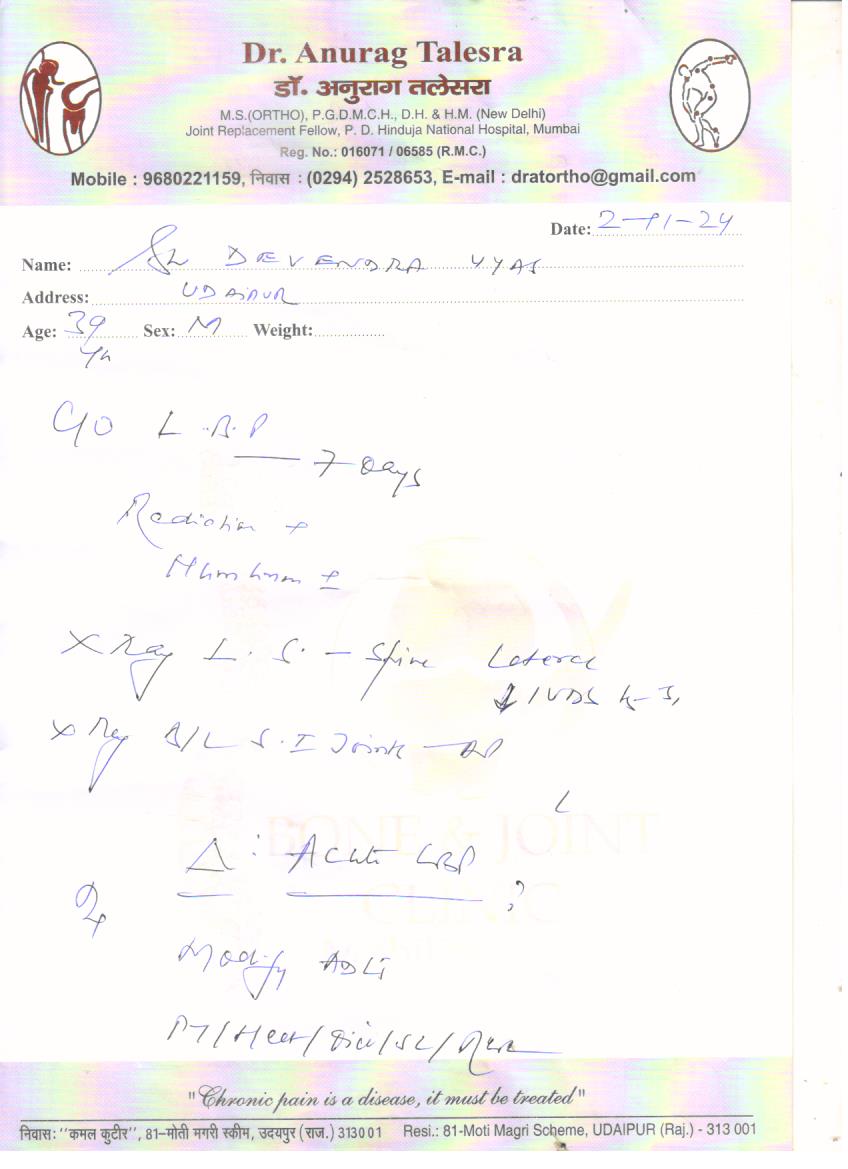 Dr. Anurag Talesra
डॉ. अनुराग तलेसरा
M.S.(ORTHO), P.G.D.M.C.H., D.H. & H.M. (New Delhi)
Joint Replacement Fellow, P. D. Hinduja National Hospital, Mumbai
Reg. No.: 016071 / 06585 (R.M.C.)
Mobile : 9680221159, निवास : (0294) 2528653, E-mail : dratortho@gmail.com
Date: 2-11-24
Name: Sh DEVENDRA VYAS
Address: UDAIPUR
Age: 39 Sex: M Weight:
Yr
C/O L.B.P
— 7 Days
Radiation +
Numbness ±
X Ray L.S. - Spine Lateral
↓ IVDS
X Ray B/L S.I Joint - AP
BONE & JOINT
CLINIC
Δ : Acute LBP ?
Rx
Modify ADLs
PT/Heat/
"Chronic pain is a disease, it must be treated"
निवासः "कमल कुटीर", 81-मोती मगरी स्कीम, उदयपुर (राज.) 313001 Resi.: 81-Moti Magri Scheme, UDAIPUR (Raj.) - 313 001